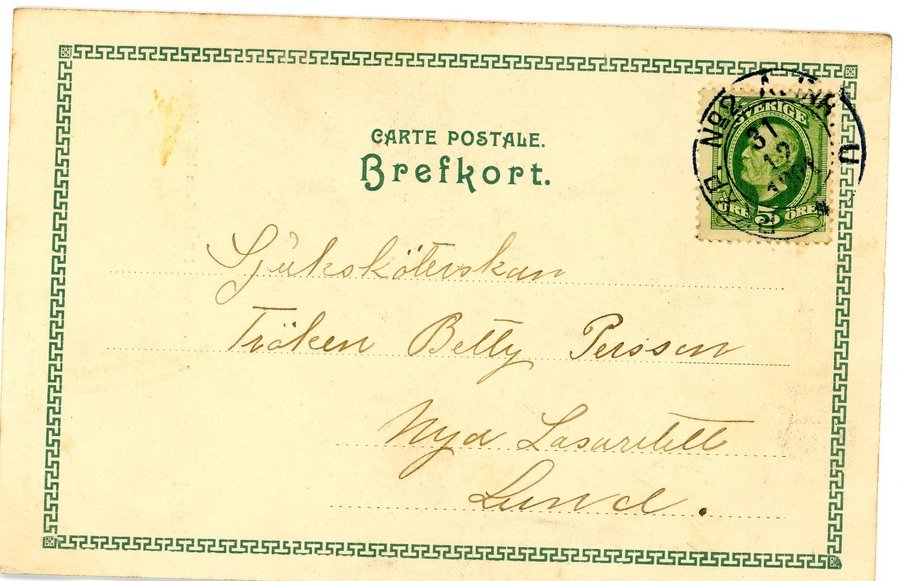 CARTE POSTALE.
Brefkort.
SVERIGE
5
ÖRE
PXP. No 2
31
12
Sjuksköterskan
Fröken Betty Persson
Nya Lasarettet
Lund.